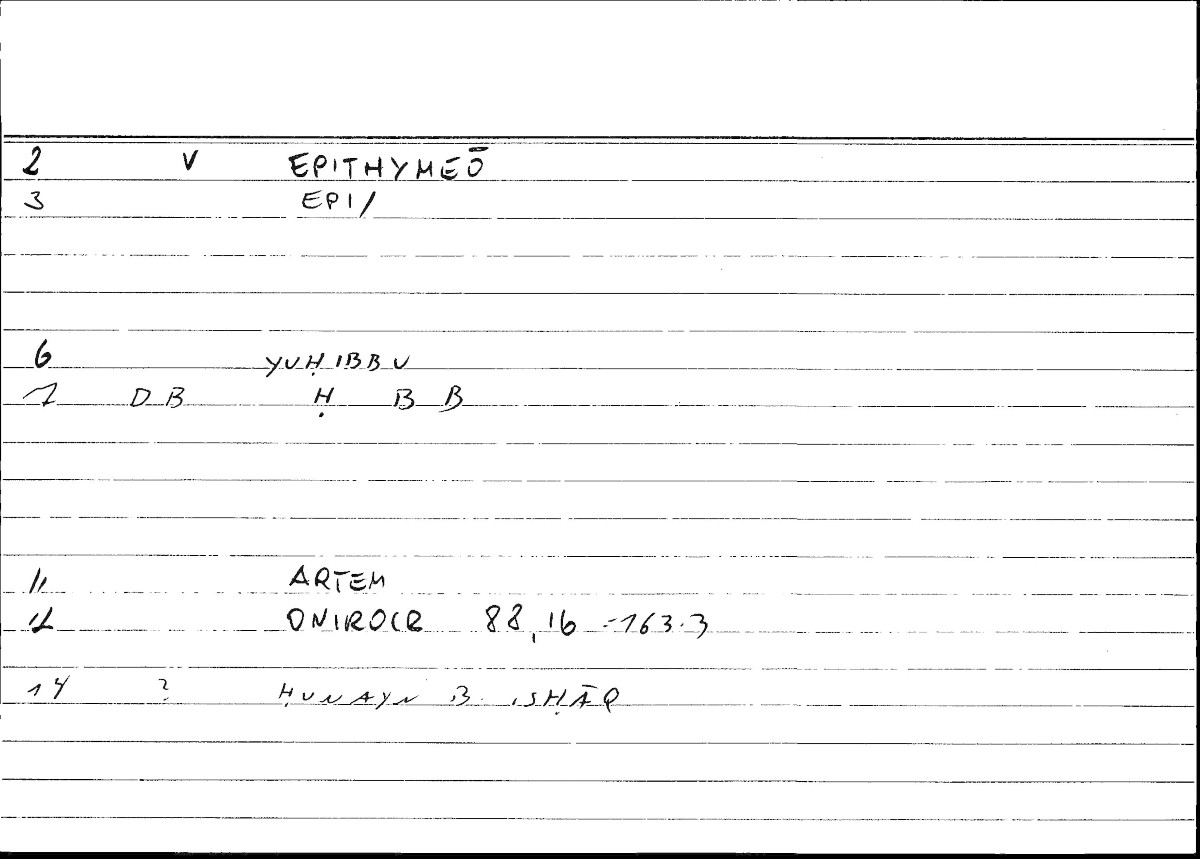 2 V EPITHYMEŌ
3 EPI/
6 YUḤIBBU
7 DB Ḥ B B
11 ARTEM
12 ONIROCR 88,16 -163.3
14 ? ḤUNAYN B. ISḤĀQ